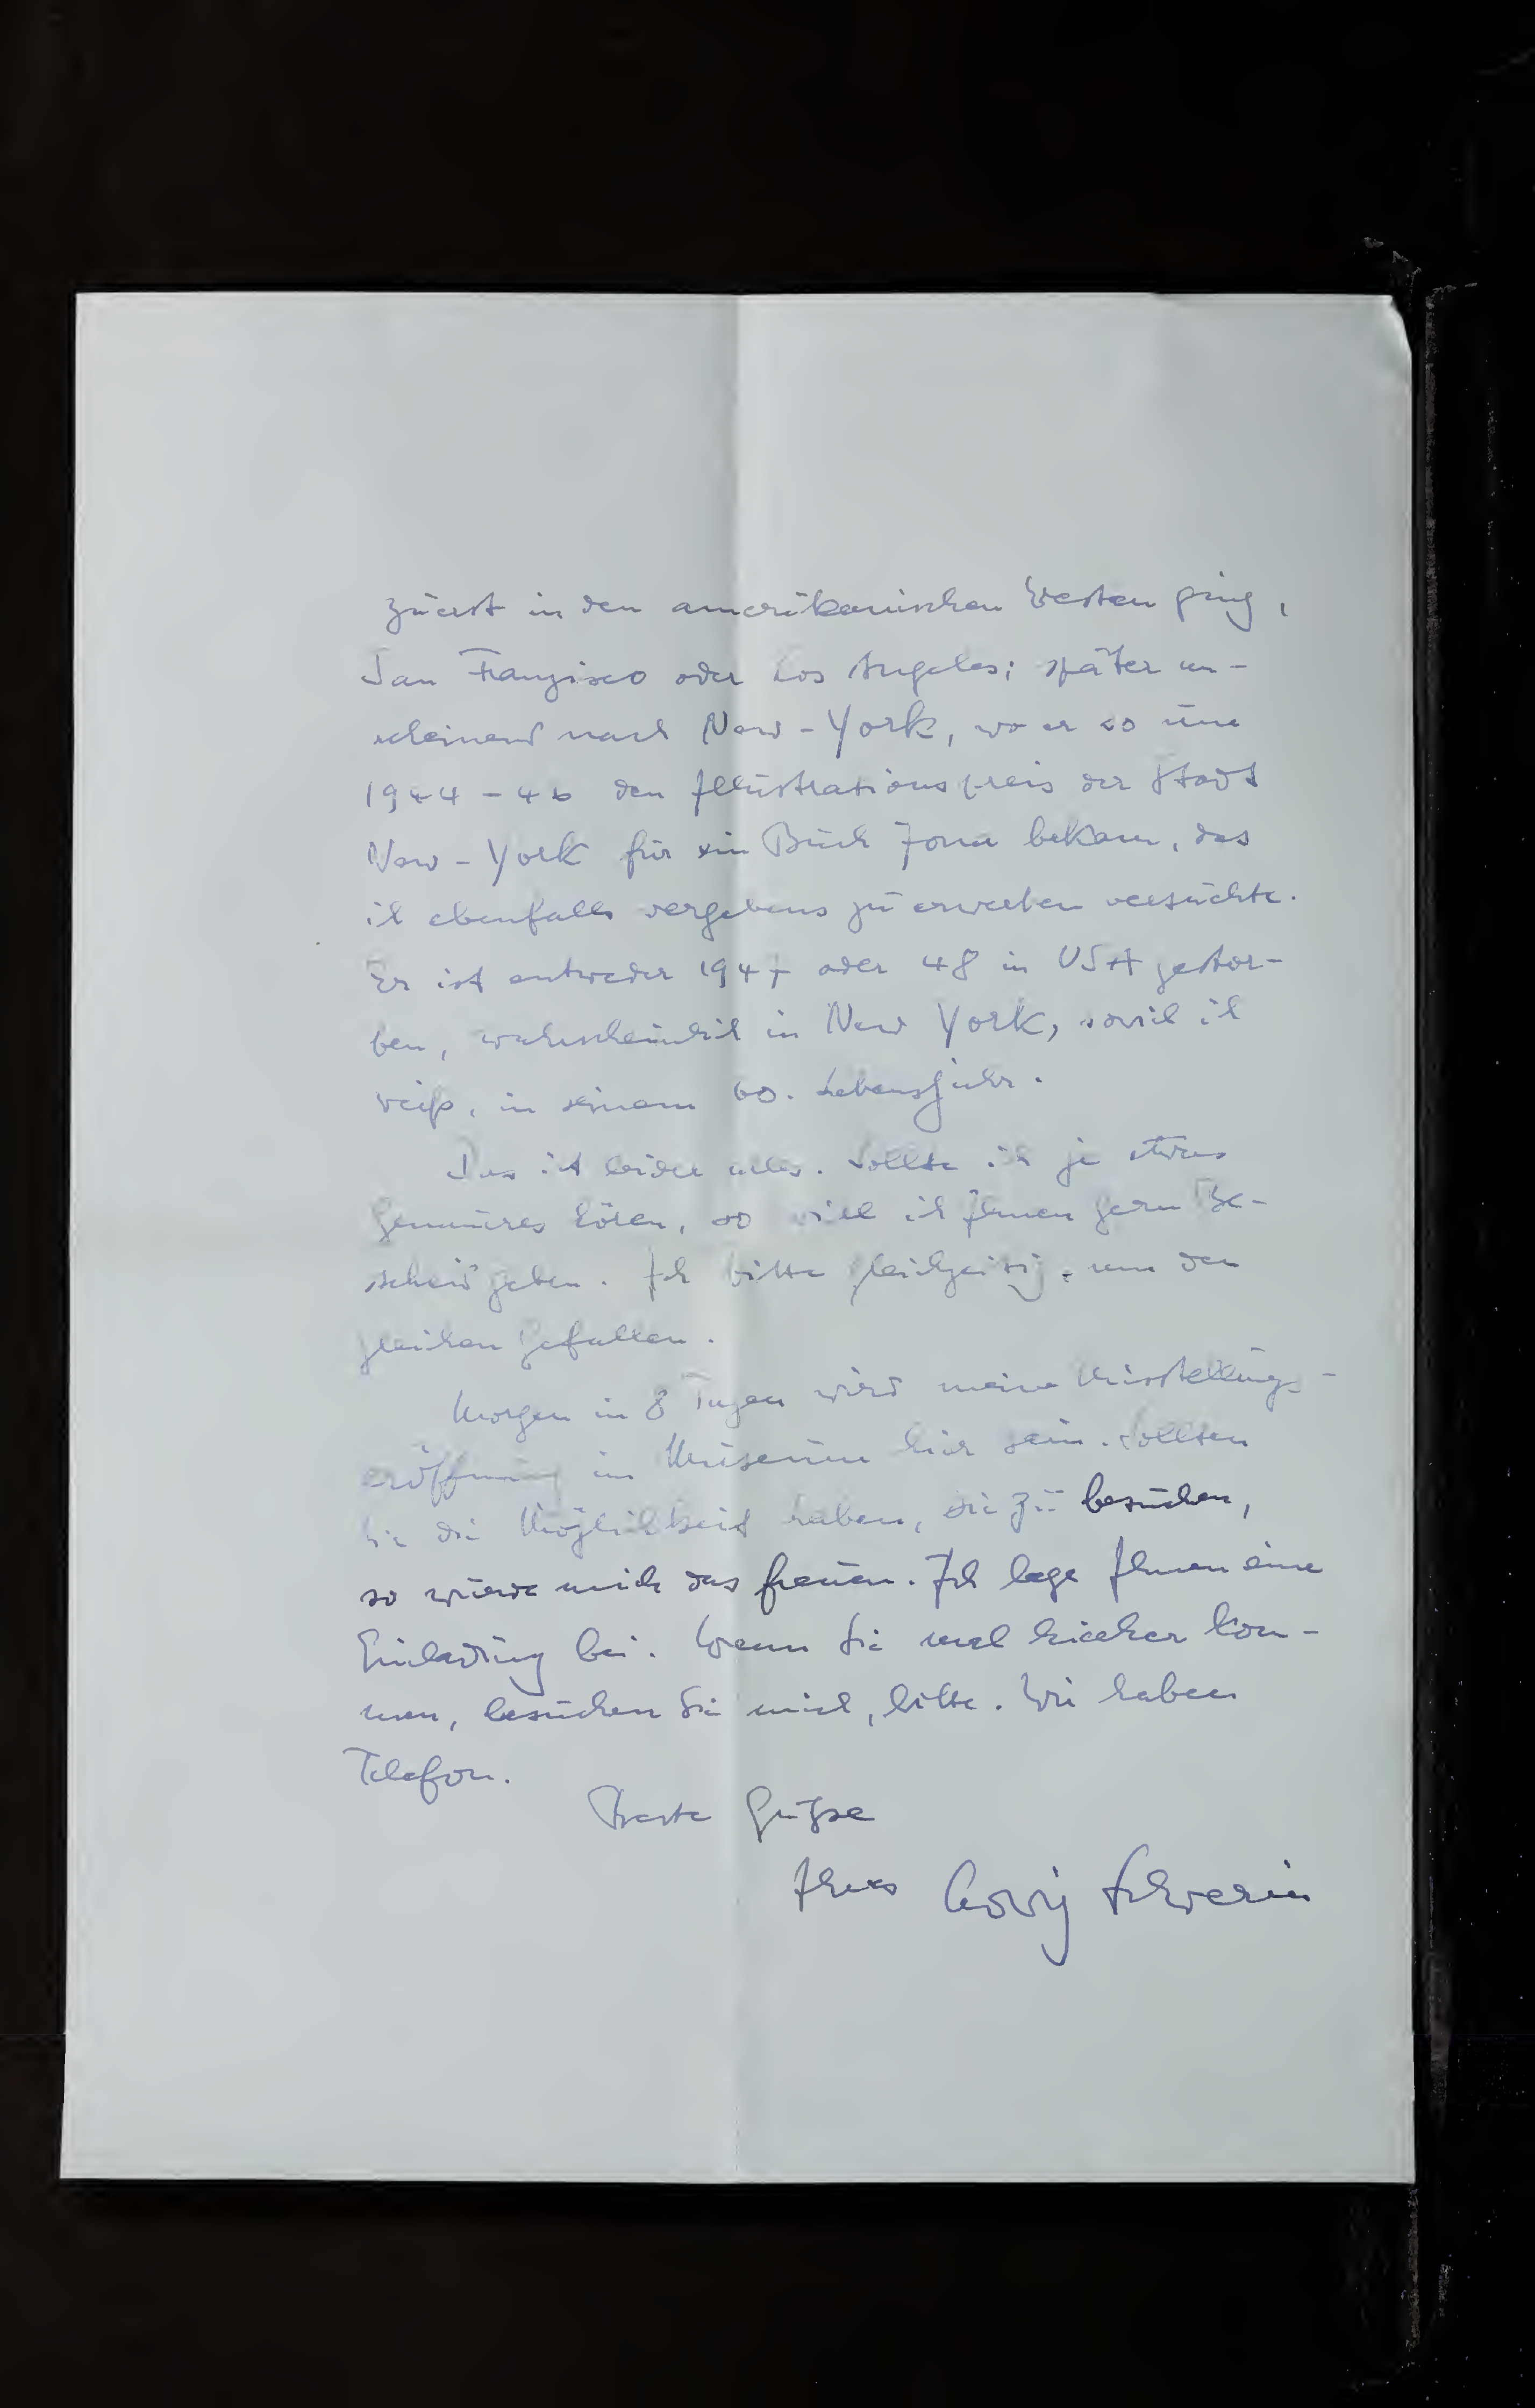 zuerst in den amerikanischen Westen ging,
San Franzisco oder Los Angeles; später an-
scheinend nach New-York, wo er so um
1944-46 den Illustrationspreis der Stadt
New-York für ein Buch Jona bekam, das
ich ebenfalls vergebens zu erwerben versuchte.
Er ist entweder 1947 oder 48 in USA gestor-
ben, wahrscheinlich in New York, soviel ich
weiß, in seinem 60. Lebensjahr.
Das ist leider alles. Sollte ich je etwas
Genaueres hören, so will ich Ihnen gern Be-
scheid geben. Ich bitte gleichzeitig um den
gleichen Gefallen.
Morgen in 8 Tagen wird meine Ausstellungs-
eröffnung im Museum hier sein. Sollten
Sie die Möglichkeit haben, sie zu besuchen,
so würde mich das freuen. Ich lege Ihnen eine
Einladung bei. Wenn Sie mal hierher kom-
men, besuchen Sie mich, bitte. Wir haben
Telefon.
Beste Grüße
Ihres Schwerin